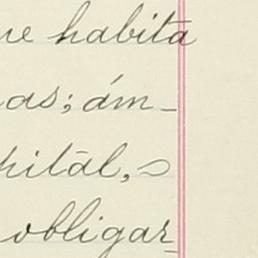 ne habita
as; ám-
pital, s
obligar-